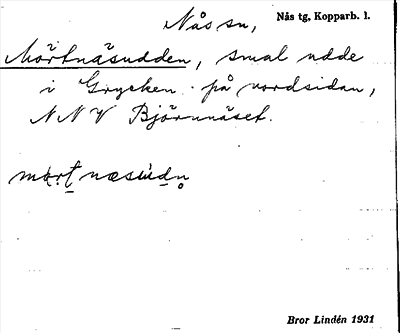 Nås sn, Nås tg, Kopparb. l.
Mörtnäsudden, smal udde
i Grycken på nordsidan,
NNV Björnnäset.
Bror Lindén 1931